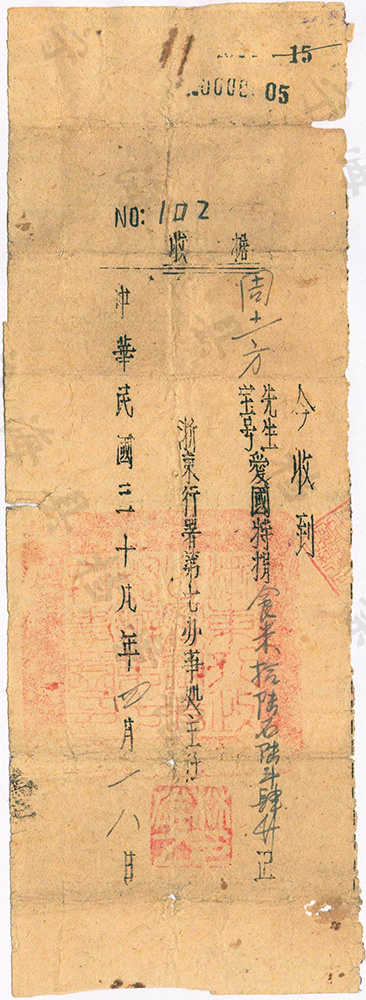 15
05
NO: 102
收據
今收到
周
先生
宝号
愛國特捐食米拾陸石陸斗肆升正
浙東行署第七办事处主任
中華民國三十八年四月一八日